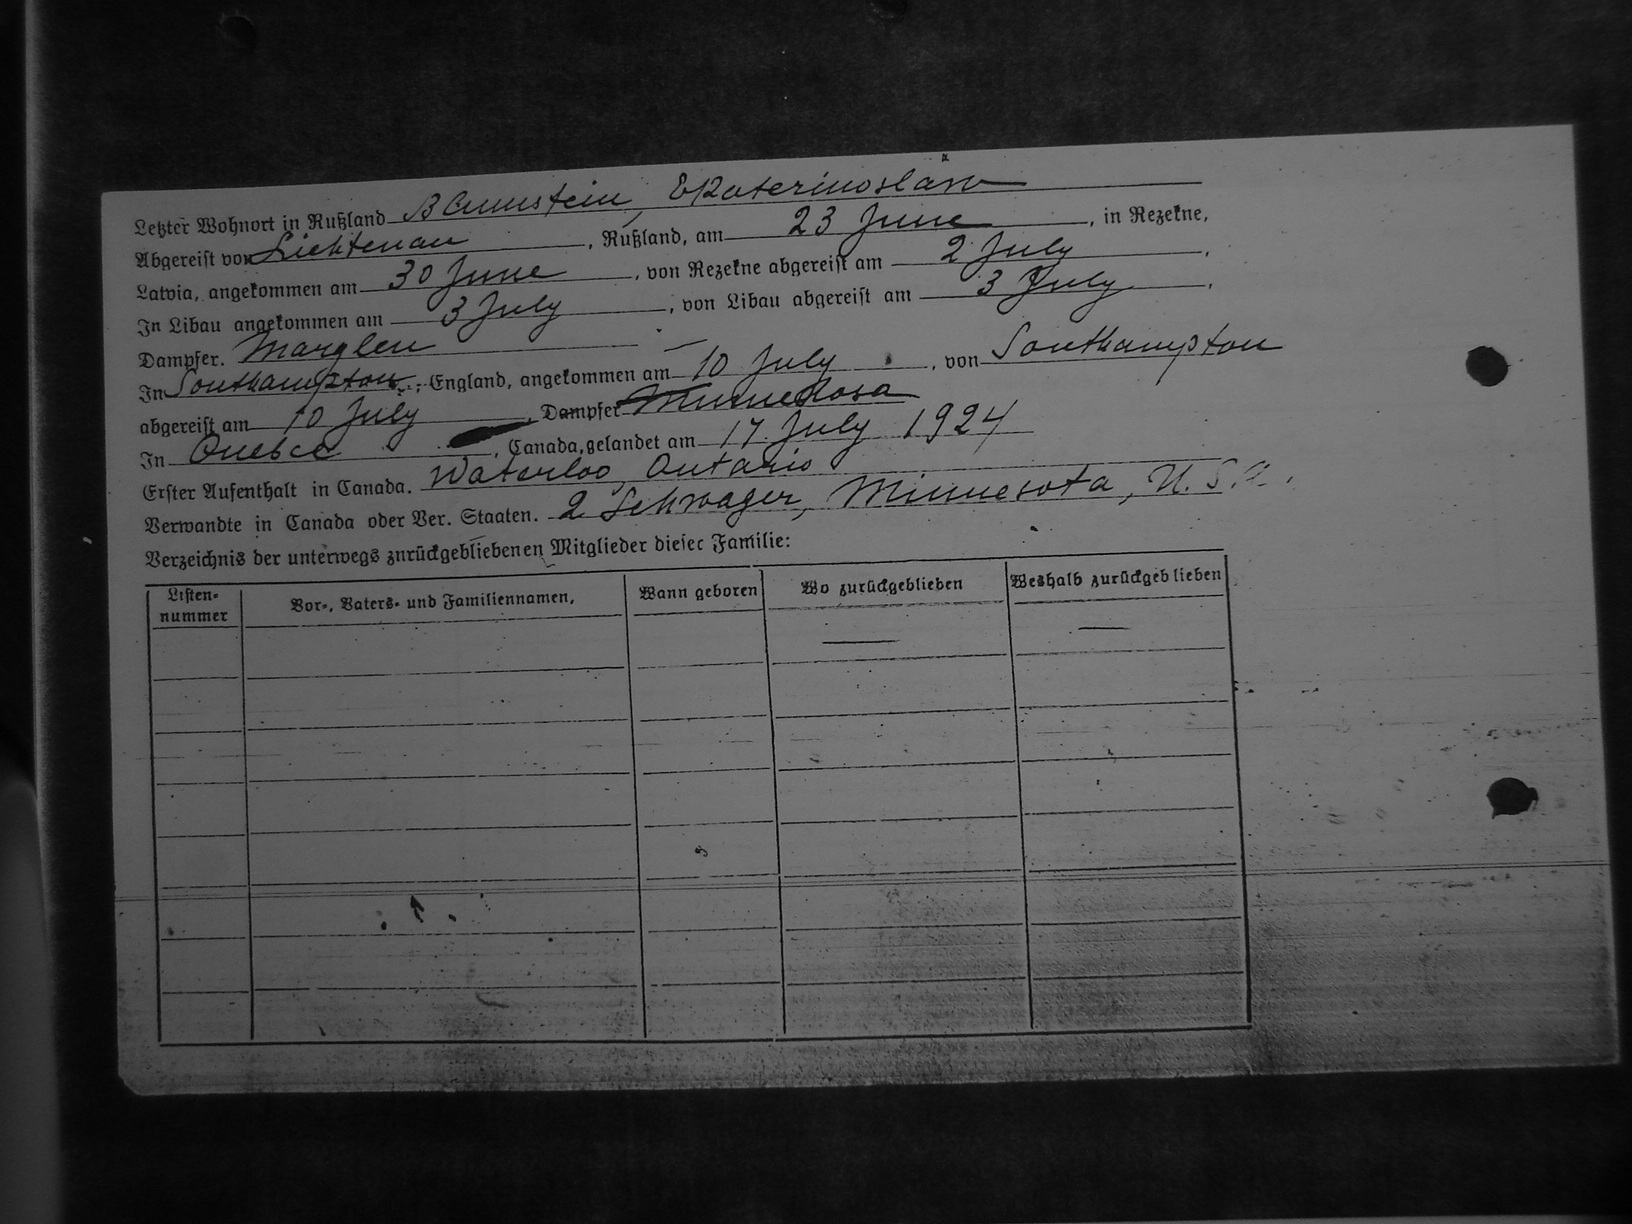 Letzter Wohnort in Rußland Blumstein, Ekaterinoslaw
Abgereist von Lichtenau, Rußland, am 23 June, in Rezekne,
Latvia, angekommen am 30 June, von Rezekne abgereist am 2 July,
In Libau angekommen am 3 July, von Libau abgereist am 3 July,
Dampfer. Marglen
In Southampton, England, angekommen am 10 July, von Southampton
abgereist am 10 July, Dampfer Minnedosa
In Quebec, Canada, gelandet am 17 July 1924
Erster Aufenthalt in Canada. Waterloo, Ontario
Verwandte in Canada oder Ver. Staaten. 2 Schwager, Minnesota, U.S.A.
Verzeichnis der unterwegs zurückgebliebenen Mitglieder dieser Familie:
Listen-
nummer
Vor-, Vaters- und Familiennamen,
Wann geboren
Wo zurückgeblieben
Weshalb zurückgeblieben